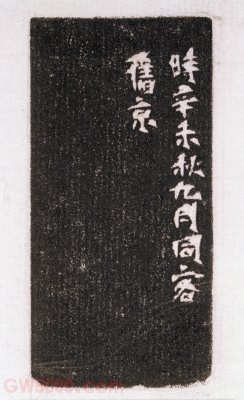 時辛未秋九月同客
舊京